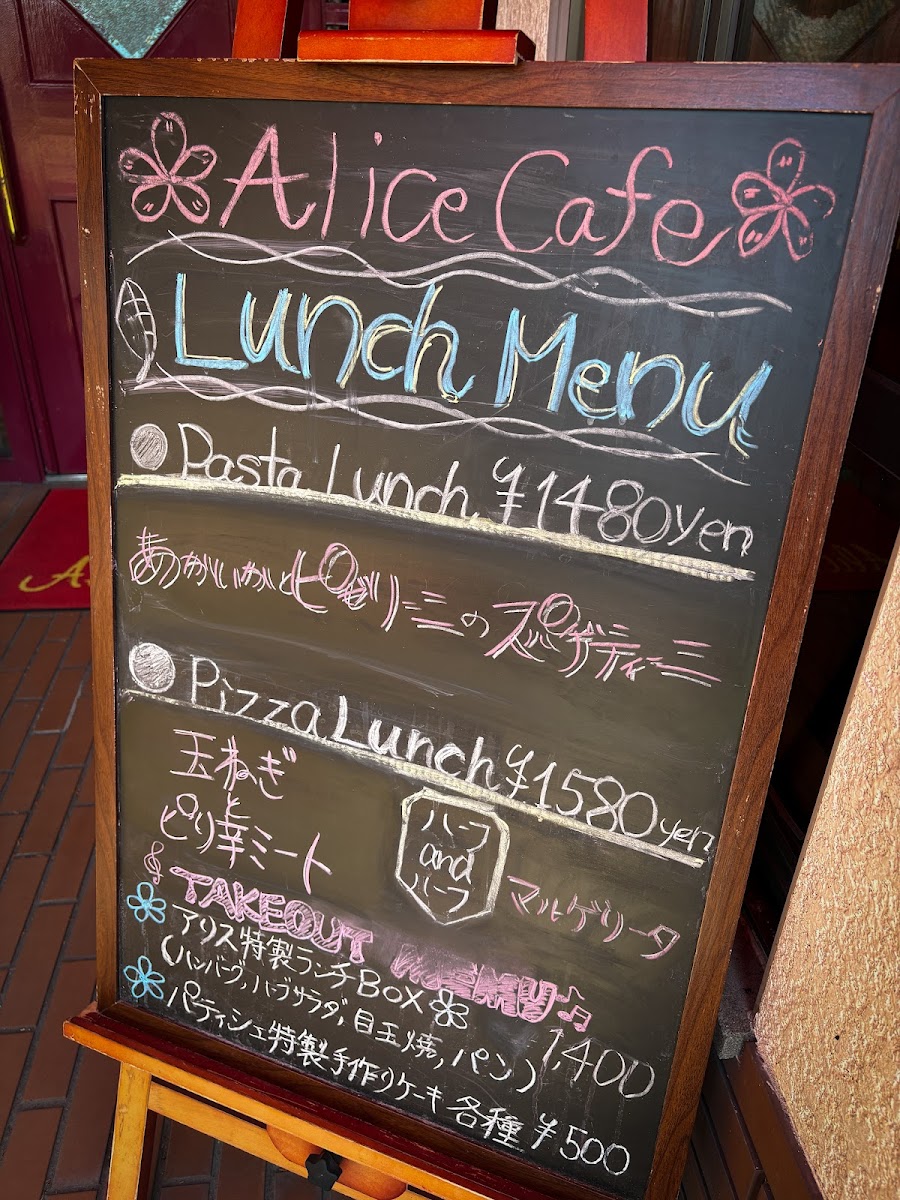 Alice Cafe
Lunch Menu
Pasta Lunch ¥1480yen
のスパゲティーニ
Pizza Lunch ¥1580yen
玉ねぎ
と
ピリ辛ミート
ハーフ
and
ハーフ
マルゲリータ
TAKEOUT MEMU
アリス特製ランチBOX
(ハンバーグ,ハーブサラダ,目玉焼,パン) 1,400
パティシェ特製手作りケーキ 各種 ¥500